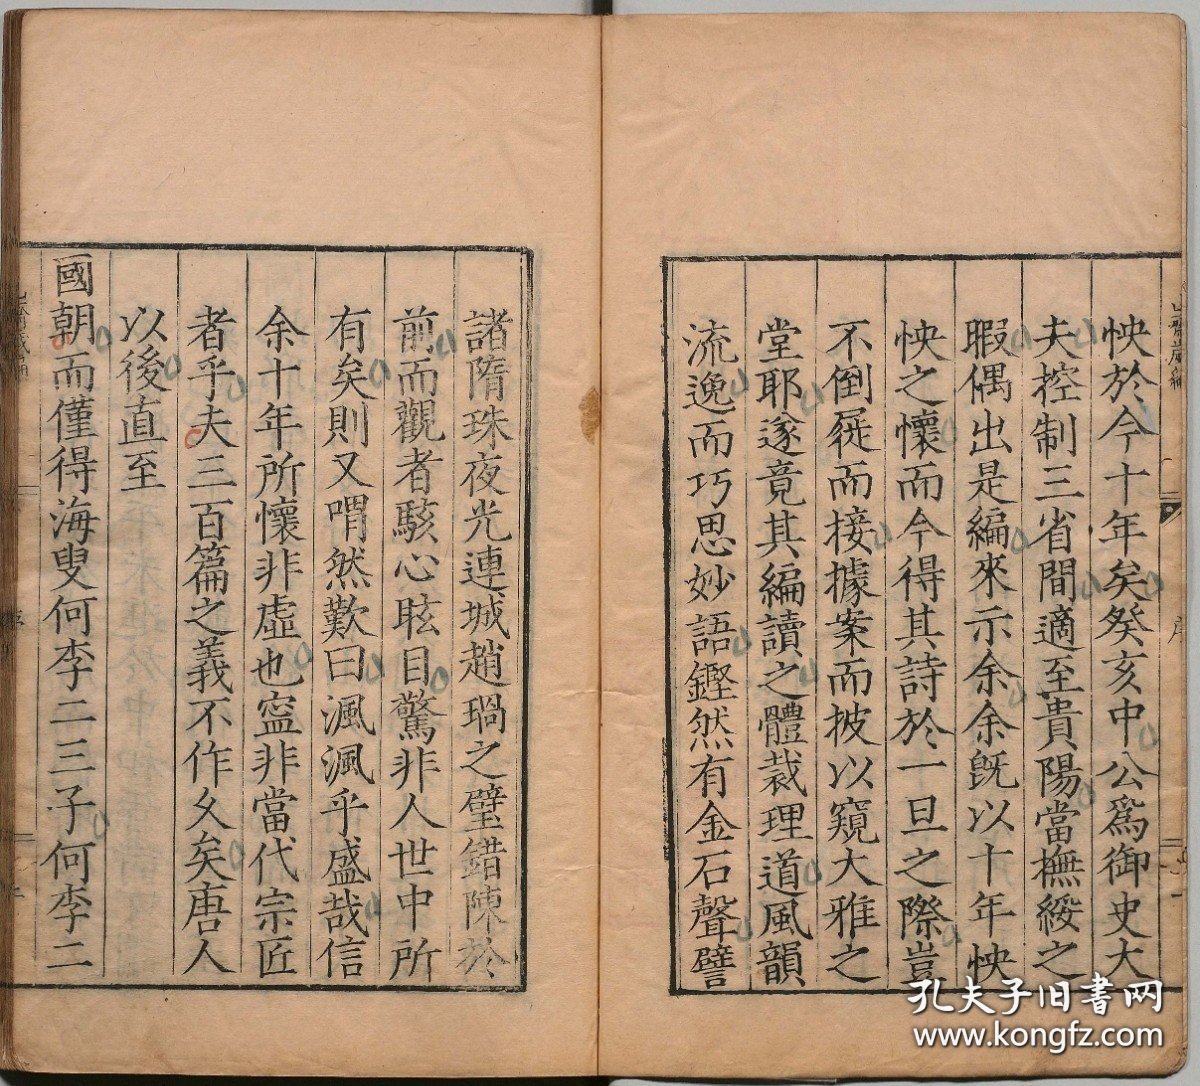 怏於今十年矣癸亥中公為御史大
夫控制三省間適至貴陽當撫綏之
暇偶出是編來示余余旣以十年怏
怏之懷而今得其詩於一旦之際豈
不倒屣而接據案而披以窺大雅之
堂耶遂竟其編讀之體裁理道風韻
流逸而巧思妙語鏗然有金石聲譬
諸隋珠夜光連城趙瑦之璧錯陳於
前而觀者駭心眩目驚非人世中所
有矣則又喟然歎曰渢渢乎盛哉信
余十年所懷非虛也寧非當代宗匠
者乎夫三百篇之義不作久矣唐人
以後直至
國朝而僅得海叟何李二三子何李二
序
孔夫子旧書网
www.kongfz.com